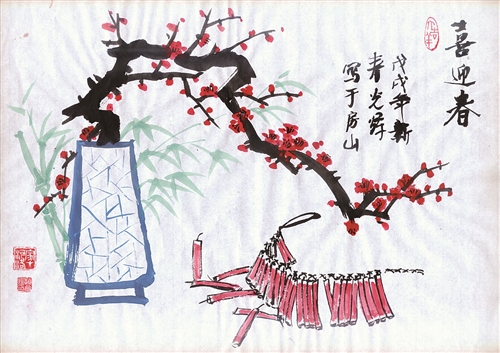 喜迎春
戊戌年新
春光
写于房山